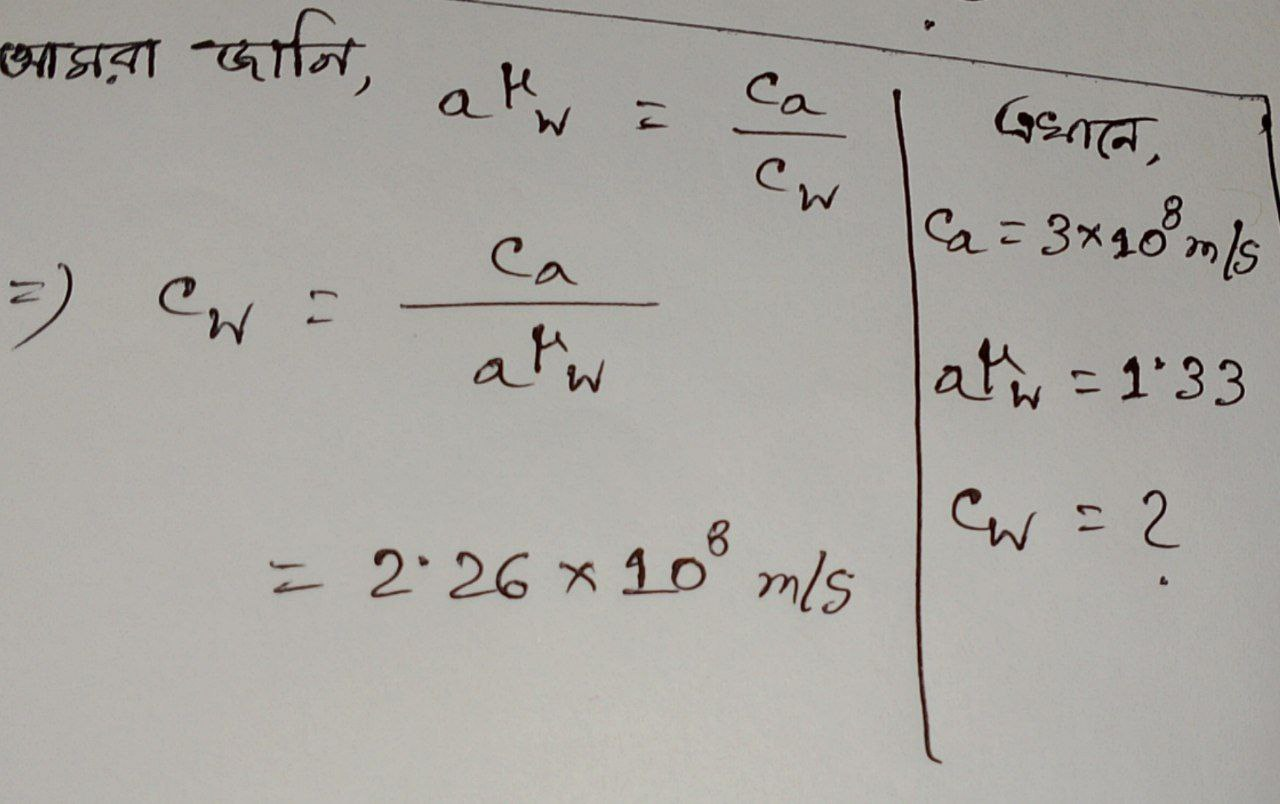 আমরা জানি, aμw = Ca / Cw
=> Cw = Ca / aμw
= 2.26 × 10⁸ m/s
এখানে,
Ca = 3×10⁸ m/s
aμw = 1.33
Cw = ?